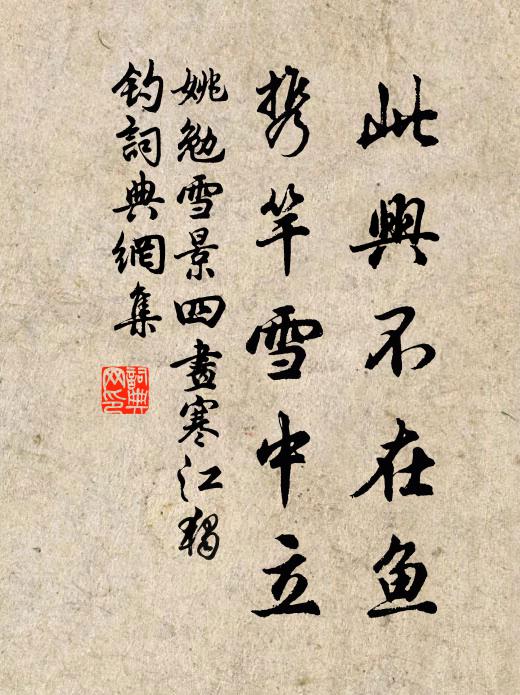 此興不在鱼
携竿雪中立
姚勉雪景四畫寒江獨
釣詞典網集
詞典
网印